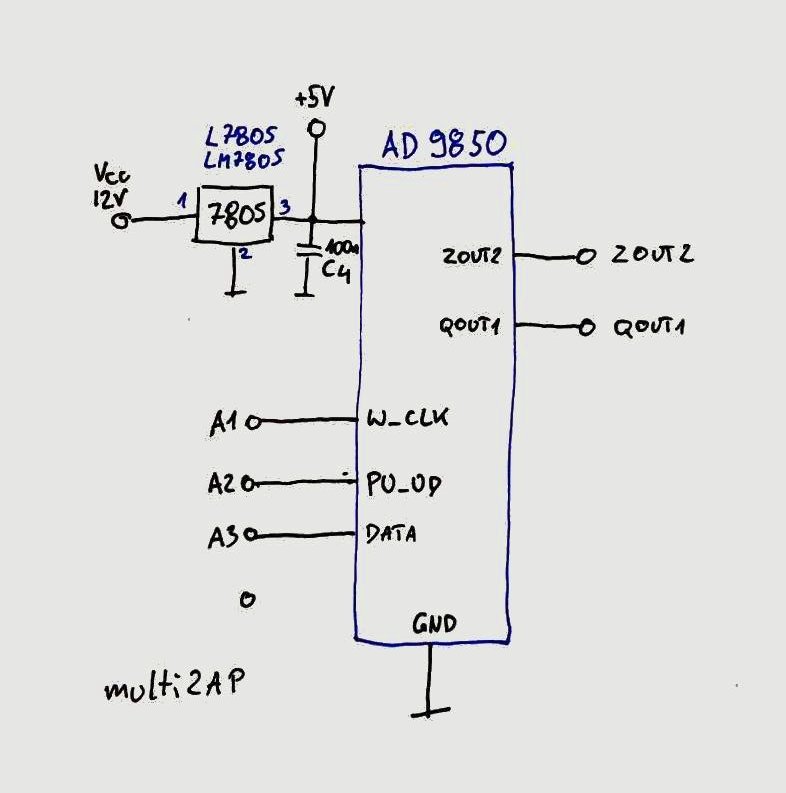 +5V
L7805
LM7805
AD 9850
Vcc
12V
1
7805
3
2
100n
C4
ZOUT2
ZOUT2
QOUT1
QOUT1
A1
W_CLK
A2
FU_UD
A3
DATA
GND
multi2AP